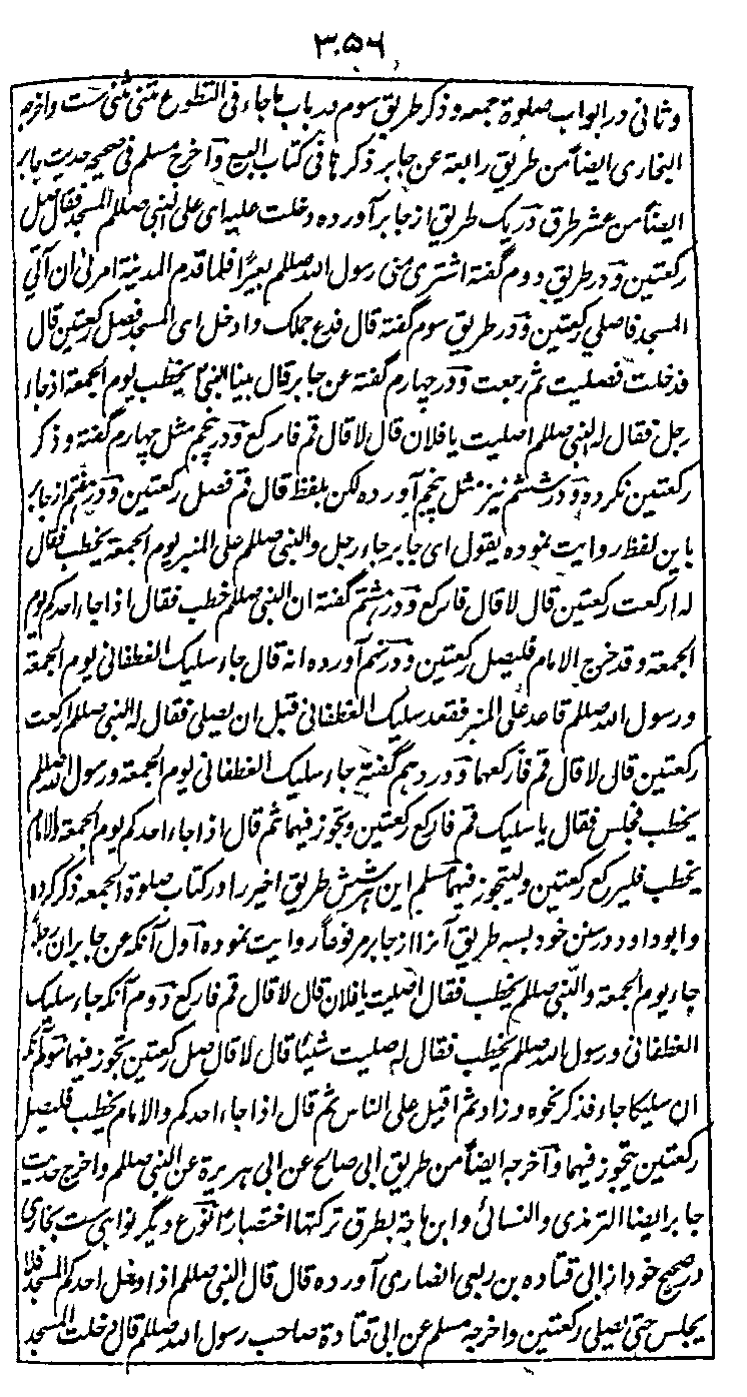 ۳۵۶
وثانی در ابواب صلوة جمعه و ذکر طریق سوم در باب ما جاء فی التطوع مثنی مثنی ست واخرجه
البخاری ایضاً من طریق رابعة عن جابر ذکرها فی کتاب البیع وآخرج مسلم فی صحیحه حدیث جابر
ایضاً من عشر طرق در یک طریق از جابر آورده دخلت علیه ای علی النبی صللم المسجد فقال صل
رکعتین ودر طریق دوم گفته اشتری منی رسول الله صللم بعیرًا فلما قدم المدینة امرنی ان آتی
المسجد فاصلی رکعتین ودر طریق سوم گفته قال فدع جملک وادخل ای المسجد فصل رکعتین قال
فدخلت فصلیت ثم رجعت ودر چهارم گفته عن جابر قال بینا النبیؐ یخطب یوم الجمعة اذ جاء
رجل فقال له النبی صللم اصلیت یا فلان قال لا قال قم فارکع ودر پنجم مثل چهارم گفته وذکر
رکعتین نکرده ودر ششم نیز مثل پنجم آورده لکن بلفظ قال قم فصل رکعتین ودر هفتم از جابر
باین لفظ روایت نموده یقول ای جابر جاء رجل والنبی صللم علی المنبر یوم الجمعة یخطب فقال
له ارکعت رکعتین قال لا قال فارکع ودر هشتم گفته ان النبی صللم خطب فقال اذا جاء احدکم یوم
الجمعة وقد خرج الامام فلیصل رکعتین ودر نهم آورده انه قال جاء سلیک الغطفانی یوم الجمعة
ورسول الله صللم قاعد علی المنبر فقعد سلیک الغطفانی قبل ان یصلی فقال له النبی صللم ارکعت
رکعتین قال لا قال قم فارکعهما ودر دهم گفته جاء سلیک الغطفانی یوم الجمعة ورسول الله صللم
یخطب فجلس فقال یا سلیک قم فارکع رکعتین وتجوز فیهما ثم قال اذا جاء احدکم یوم الجمعة والامام
یخطب فلیرکع رکعتین ولیتجوز فیهما مسلم این هر شش طریق اخیر را در کتاب صلوة الجمعه ذکر کرده
وابوداود در سنن خود بسه طریق آنرا از جابر مرفوعاً روایت نموده آول آنکه عن جابر ان رجلاً
جاء یوم الجمعة والنبی صللم یخطب فقال اصلیت یا فلان قال لا قال قم فارکع دوم آنکه جاء سلیک
الغطفانی ورسول الله صللم یخطب فقال له صلیت شیئا قال لا قال صل رکعتین تجوز فیهما سوم آنکه
ان سلیکا جاء فذکر نحوه وزاد ثم اقبل علی الناس ثم قال اذا جاء احدکم والامام یخطب فلیصل
رکعتین یتجوز فیهما وآخرجه ایضاً من طریق ابی صالح عن ابی هریرة عن النبی صللم واخرج حدیث
جابر ایضا الترمذی والنسائی وابن ماجة بطرق ترکتها اختصارًا نوع دیگر نواهی ست بخاری
در صحیح خود از ابی قتاده بن ربعی انصاری آورده قال قال النبی صللم اذا دخل احدکم المسجد فلا
یجلس حتی یصلی رکعتین واخرجه مسلم عن ابی قتادة صاحب رسول الله صللم قال دخلت المسجد